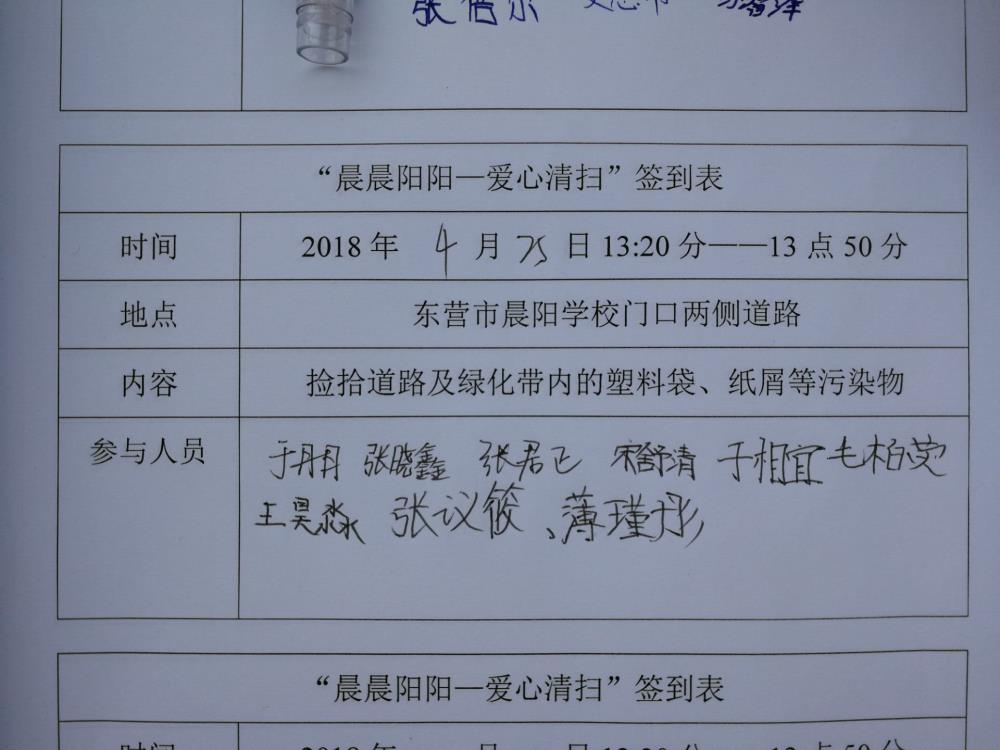 张倍尔
“晨晨阳阳—爱心清扫”签到表
时间 2018 年 4 月 25 日 13:20 分——13 点 50 分
地点 东营市晨阳学校门口两侧道路
内容 捡拾道路及绿化带内的塑料袋、纸屑等污染物
参与人员 于丹丹 张晓鑫 张君 宋舒清 于相宜 毛柏荧
王昊淼 张议筱、薄瑾彤
“晨晨阳阳—爱心清扫”签到表
时间 2018 年 月 日 13:20 分——13 点 50 分